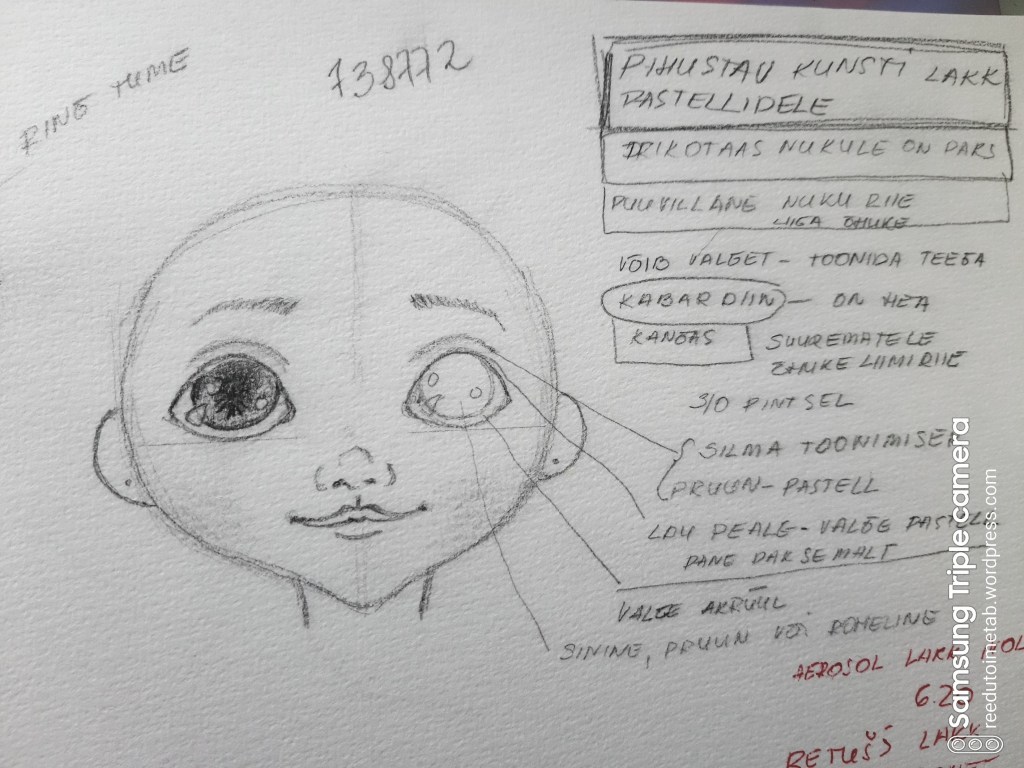 RING TUME
738772
PIHUSTAV KUNSTI LAKK
PASTELLIDELE
TRIKOTAAS NUKULE ON PAKS
PUUVILLANE NUKU RIIE
LIIGA ÕHUKE
VÕIB VALGET - TOONIDA TEEGA
KABARDIIN - ON HEA
KANGAS
SUUREMATELE
ÕHUKE LIIMIRIIE
3/0 PINTSEL
SILMA TOONIMISEK
PRUUN - PASTELL
LAU PEALE - VALGE PASTELL
PANE PAKSEMALT
VALGE AKRÜÜL
SININE, PRUUN VÕI ROHELINE
AEROSOL LAKK
6.20
RETUŠŠ LAKK
Samsung Triple camera
reedutoimetab.wordpress.com